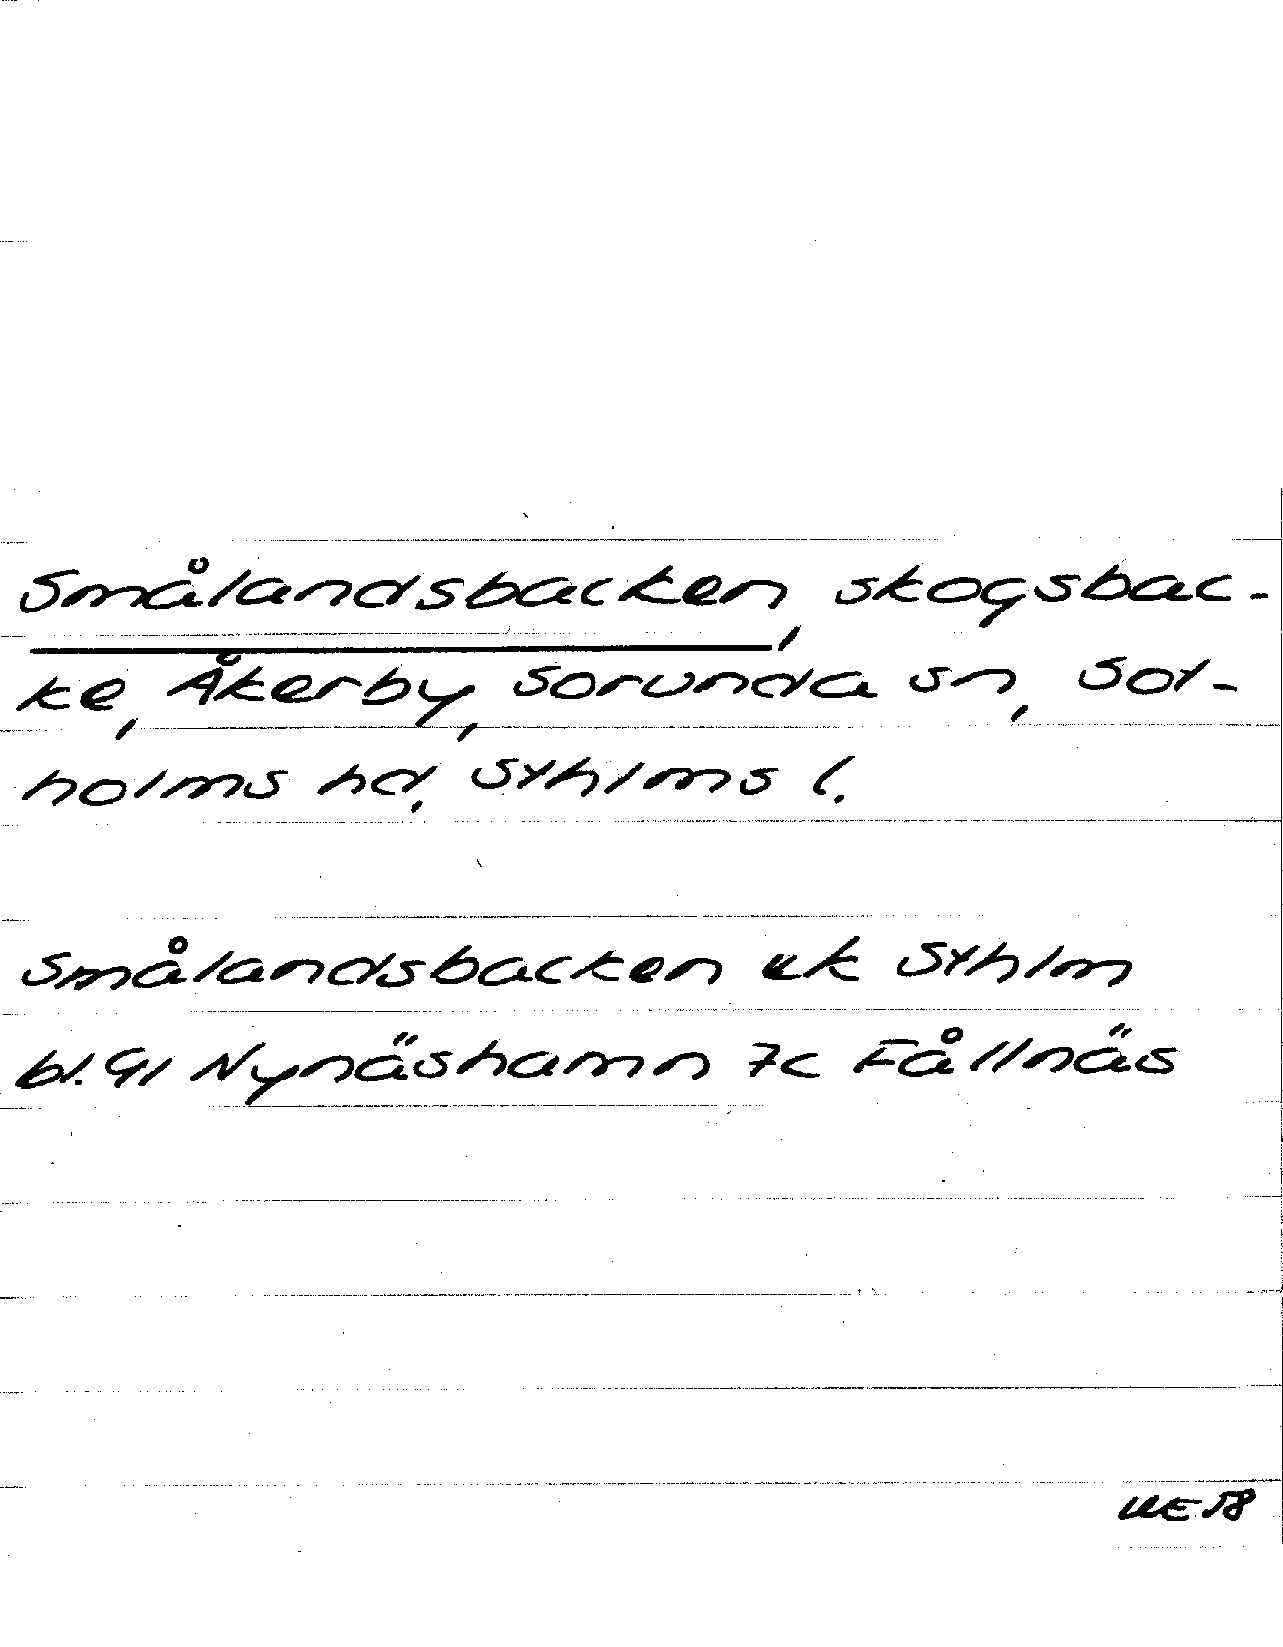 Smålandsbacken, skogsbac-
ke, Åkerby, Sorunda sn, Sot-
holms hd, Sthlms l.
Smålandsbacken ek Sthlm
bl. 91 Nynäshamn 7c Fållnäs
UE 58